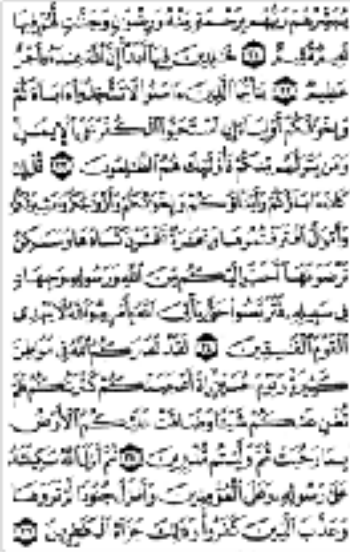 يبشرهم ربهم برحمة منه ورضوان وجنات لهم فيها
نعيم مقيم ٢١ خالدين فيها أبدا إن الله عنده أجر
عظيم ٢٢ يا أيها الذين ءامنوا لا تتخذوا ءاباءكم
وإخوانكم أولياء إن استحبوا الكفر على الإيمان
ومن يتولهم منكم فأولئك هم الظالمون ٢٣ قل إن
كان ءاباؤكم وأبناؤكم وإخوانكم وأزواجكم وعشيرتكم
وأموال اقترفتموها وتجارة تخشون كسادها ومساكن
ترضونها أحب إليكم من الله ورسوله وجهاد
في سبيله فتربصوا حتى يأتي الله بأمره والله لا يهدي
القوم الفاسقين ٢٤ لقد نصركم الله في مواطن
كثيرة ويوم حنين إذ أعجبتكم كثرتكم فلم
تغن عنكم شيئا وضاقت عليكم الأرض
بما رحبت ثم وليتم مدبرين ٢٥ ثم أنزل الله سكينته
على رسوله وعلى المؤمنين وأنزل جنودا لم تروها
وعذب الذين كفروا وذلك جزاء الكافرين ٢٦